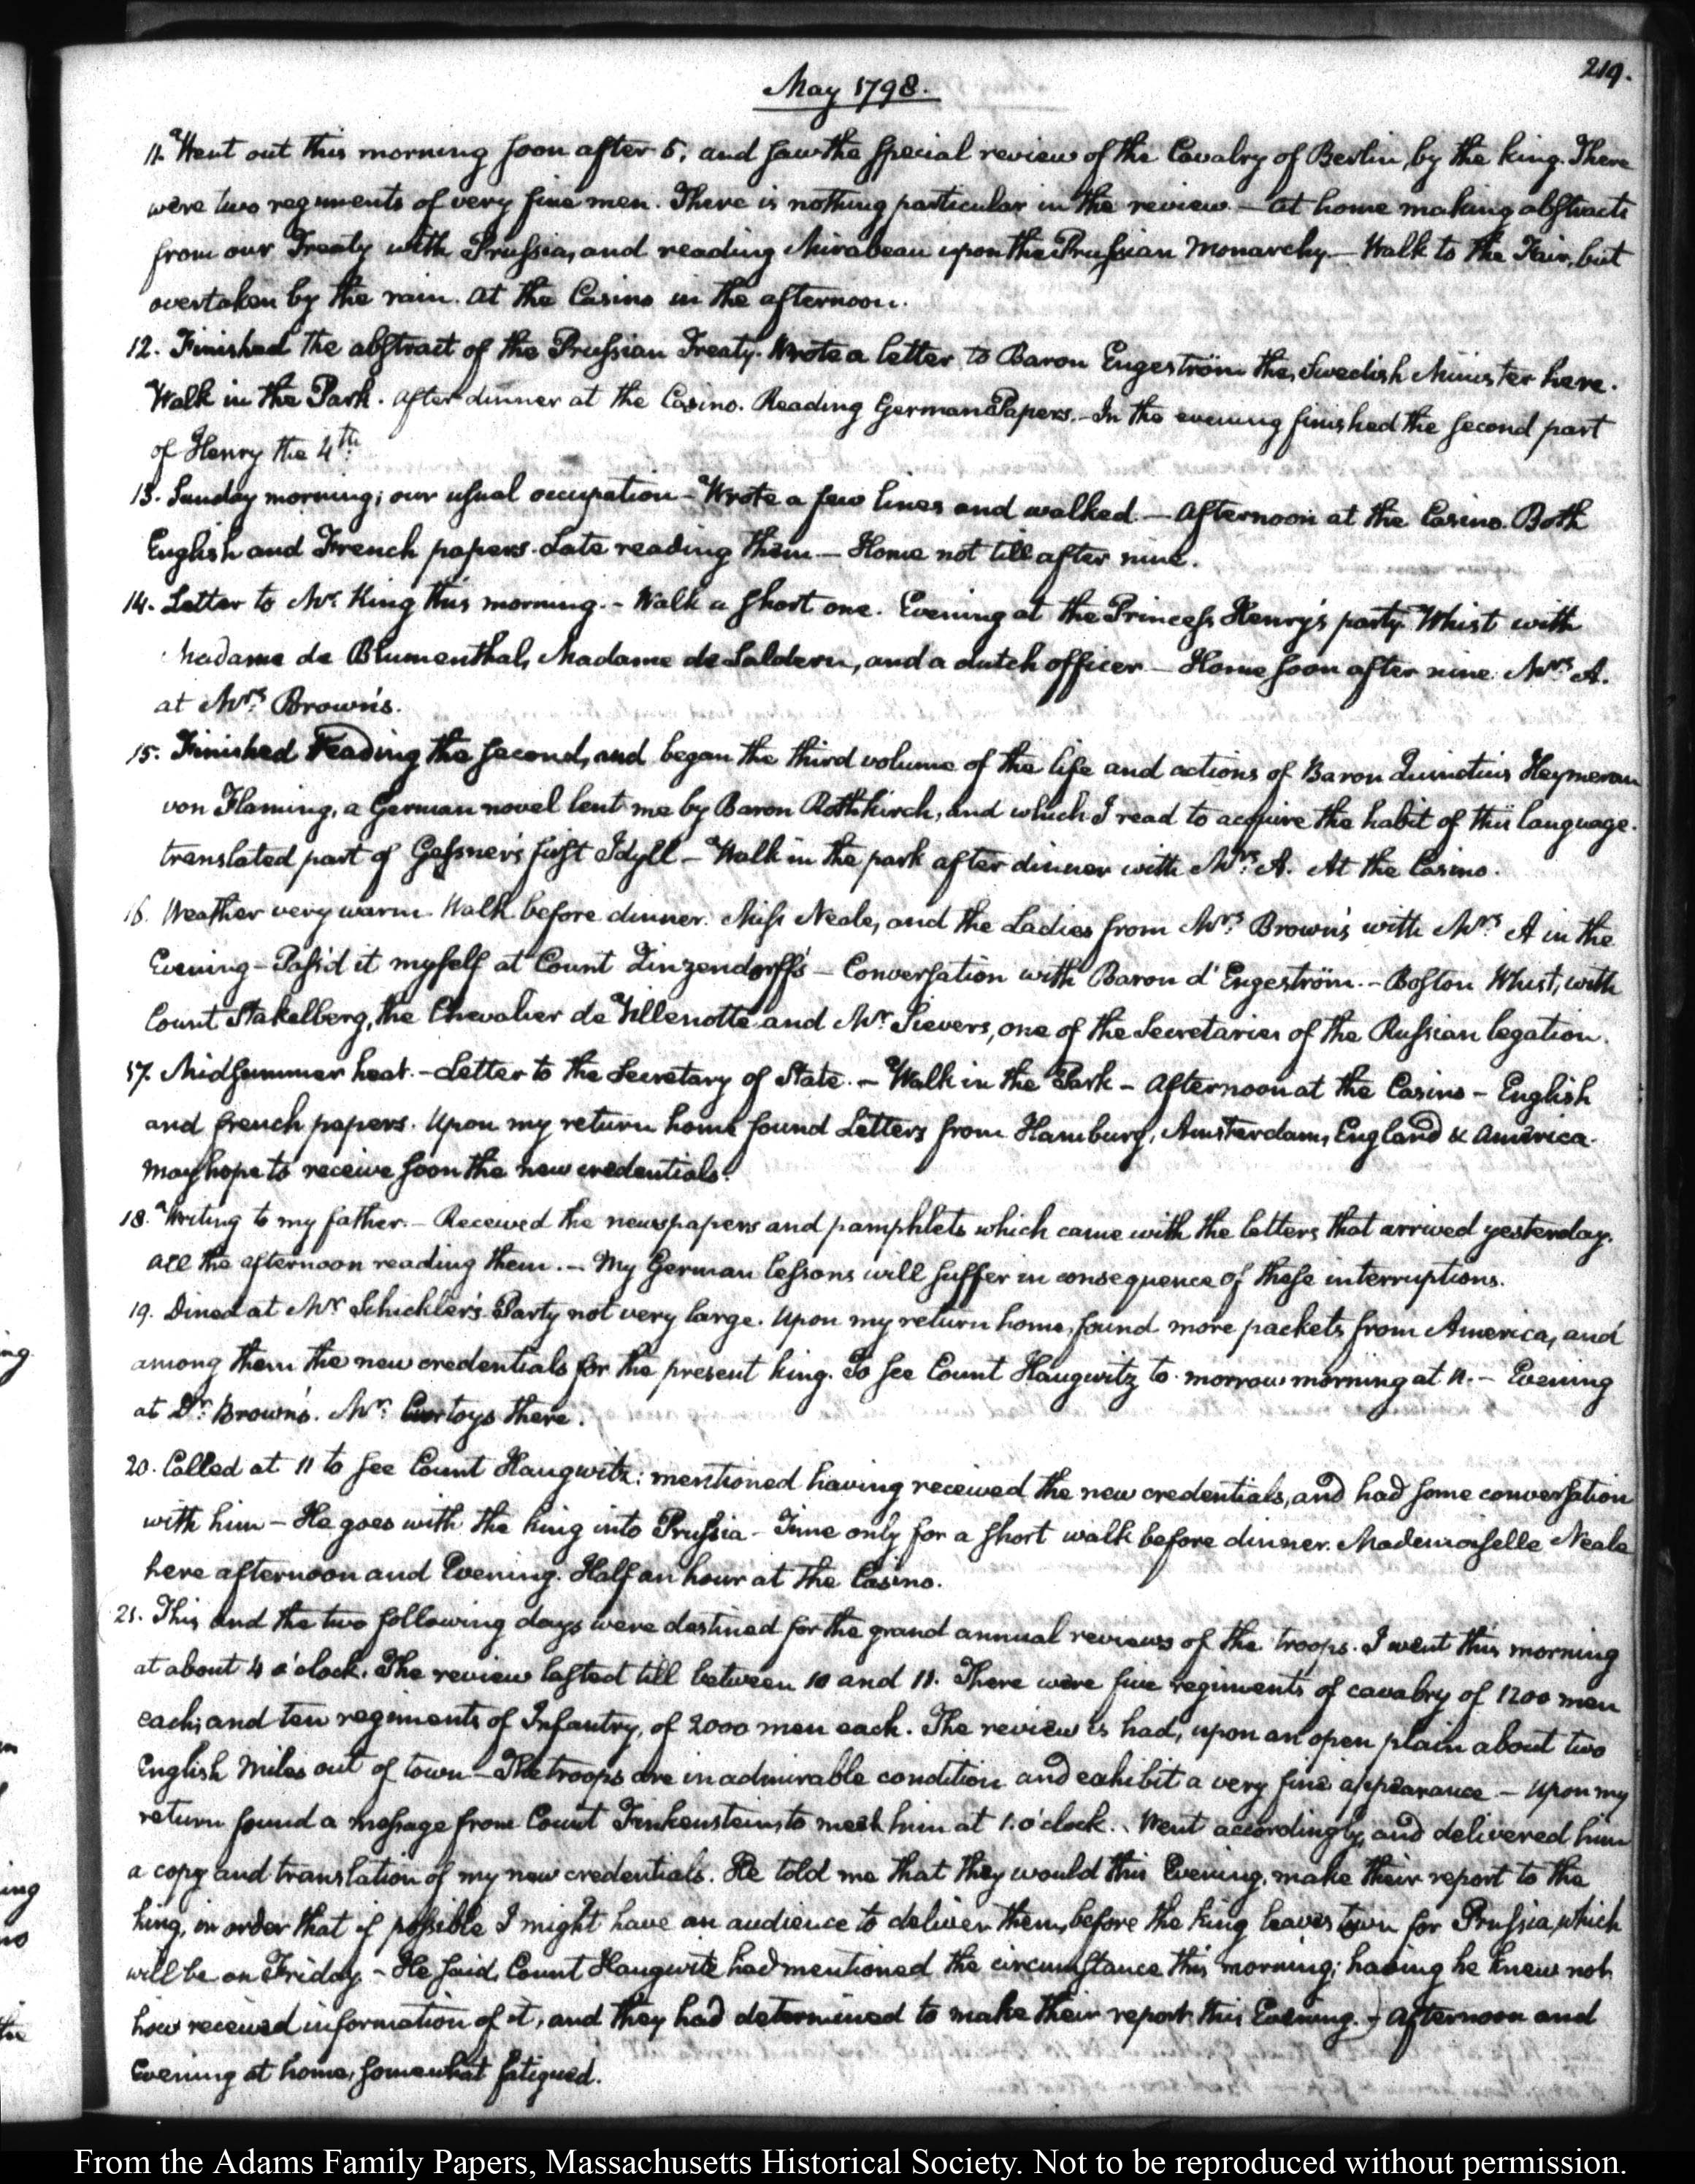 219.
May 1798.
11. Went out this morning soon after 5, and saw the special review of the Cavalry of Berlin, by the king. There
were two regiments of very fine men. There is nothing particular in the review. — at home making abstracts
from our Treaty with Prussia, and reading Mirabeau upon the Prussian Monarchy — Walk to the Fair, but
overtaken by the rain. At the Casino in the afternoon.
12. Finished the abstract of the Prussian Treaty. Wrote a letter to Baron Engeström the Swedish Minister here.
Walk in the Park. After dinner at the Casino. Reading German Papers. — In the evening finished the second part
of Henry the 4th.
13. Sunday morning; our usual occupation — Wrote a few lines and walked — Afternoon at the Casino. Both
English and French papers. Late reading them — Home not till after nine.
14. Letter to Mr. King this morning. — Walk a short one. Evening at the Princess Henry's party. Whist with
Madame de Blumenthal, Madame de Saldern, and a dutch officer — Home soon after nine. Mrs. A.
at Mrs. Brown's.
15. Finished reading the second, and began the third volume of the life and actions of Baron Quinctius Heymeran
von Flaming, a German novel lent me by Baron Rothkirch, and which I read to acquire the habit of this language.
translated part of Gessner's first Idyll — Walk in the park after dinner with Mrs. A. At the Casino.
16. Weather very warm. Walk before dinner. Miss Neale, and the Ladies from Mrs. Brown's with Mrs. A in the
Evening — Pass'd it myself at Count Zinzendorff's — Conversation with Baron d'Engeström. — Boston Whist, with
Count Stakelberg, the Chevalier de Villenotte and Mr. Sievers, one of the Secretaries of the Russian legation.
17. Midsummer heat. — Letter to the Secretary of State. — Walk in the Park — Afternoon at the Casino — English
and french papers. Upon my return home found Letters from Hamburg, Amsterdam, England & America.
May hope to receive soon the new credentials.
18. Writing to my father. — Received the newspapers and pamphlets which came with the letters that arrived yesterday.
All the afternoon reading them. — My German lessons will suffer in consequence of these interruptions.
19. Dined at Mr. Schickler's. Party not very large. Upon my return home, found more packets from America, and
among them the new credentials for the present king. To see Count Haugwitz to-morrow morning at 11. — Evening
at Dr. Brown's. Mr. Curtoys there.
20. Called at 11 to see Count Haugwitz: mentioned having received the new credentials, and had some conversation
with him — He goes with the king into Prussia — Time only for a short walk before dinner. Mademoiselle Neale
here afternoon and Evening. Half an hour at the Casino.
21. This and the two following days were destined for the grand annual reviews of the troops. I went this morning
at about 4 o'clock. The review lasted till between 10 and 11. There were five regiments of cavalry of 1200 men
each, and ten regiments of Infantry, of 2000 men each. The review is had, upon an open plain about two
English Miles out of town — The troops are in admirable condition and exhibit a very fine appearance — Upon my
return found a message from Count Finkenstein to meet him at 1. o'clock. Went accordingly, and delivered him
a copy and translation of my new credentials. He told me that they would this Evening, make their report to the
king, in order that if possible I might have an audience to deliver them, before the king leaves town for Prussia, which
will be on Friday — He said, Count Haugwitz had mentioned the circumstance this morning; having he knew not
how received information of it, and they had determined to make their report this Evening. — Afternoon and
Evening at home, somewhat fatigued.
From the Adams Family Papers, Massachusetts Historical Society. Not to be reproduced without permission.